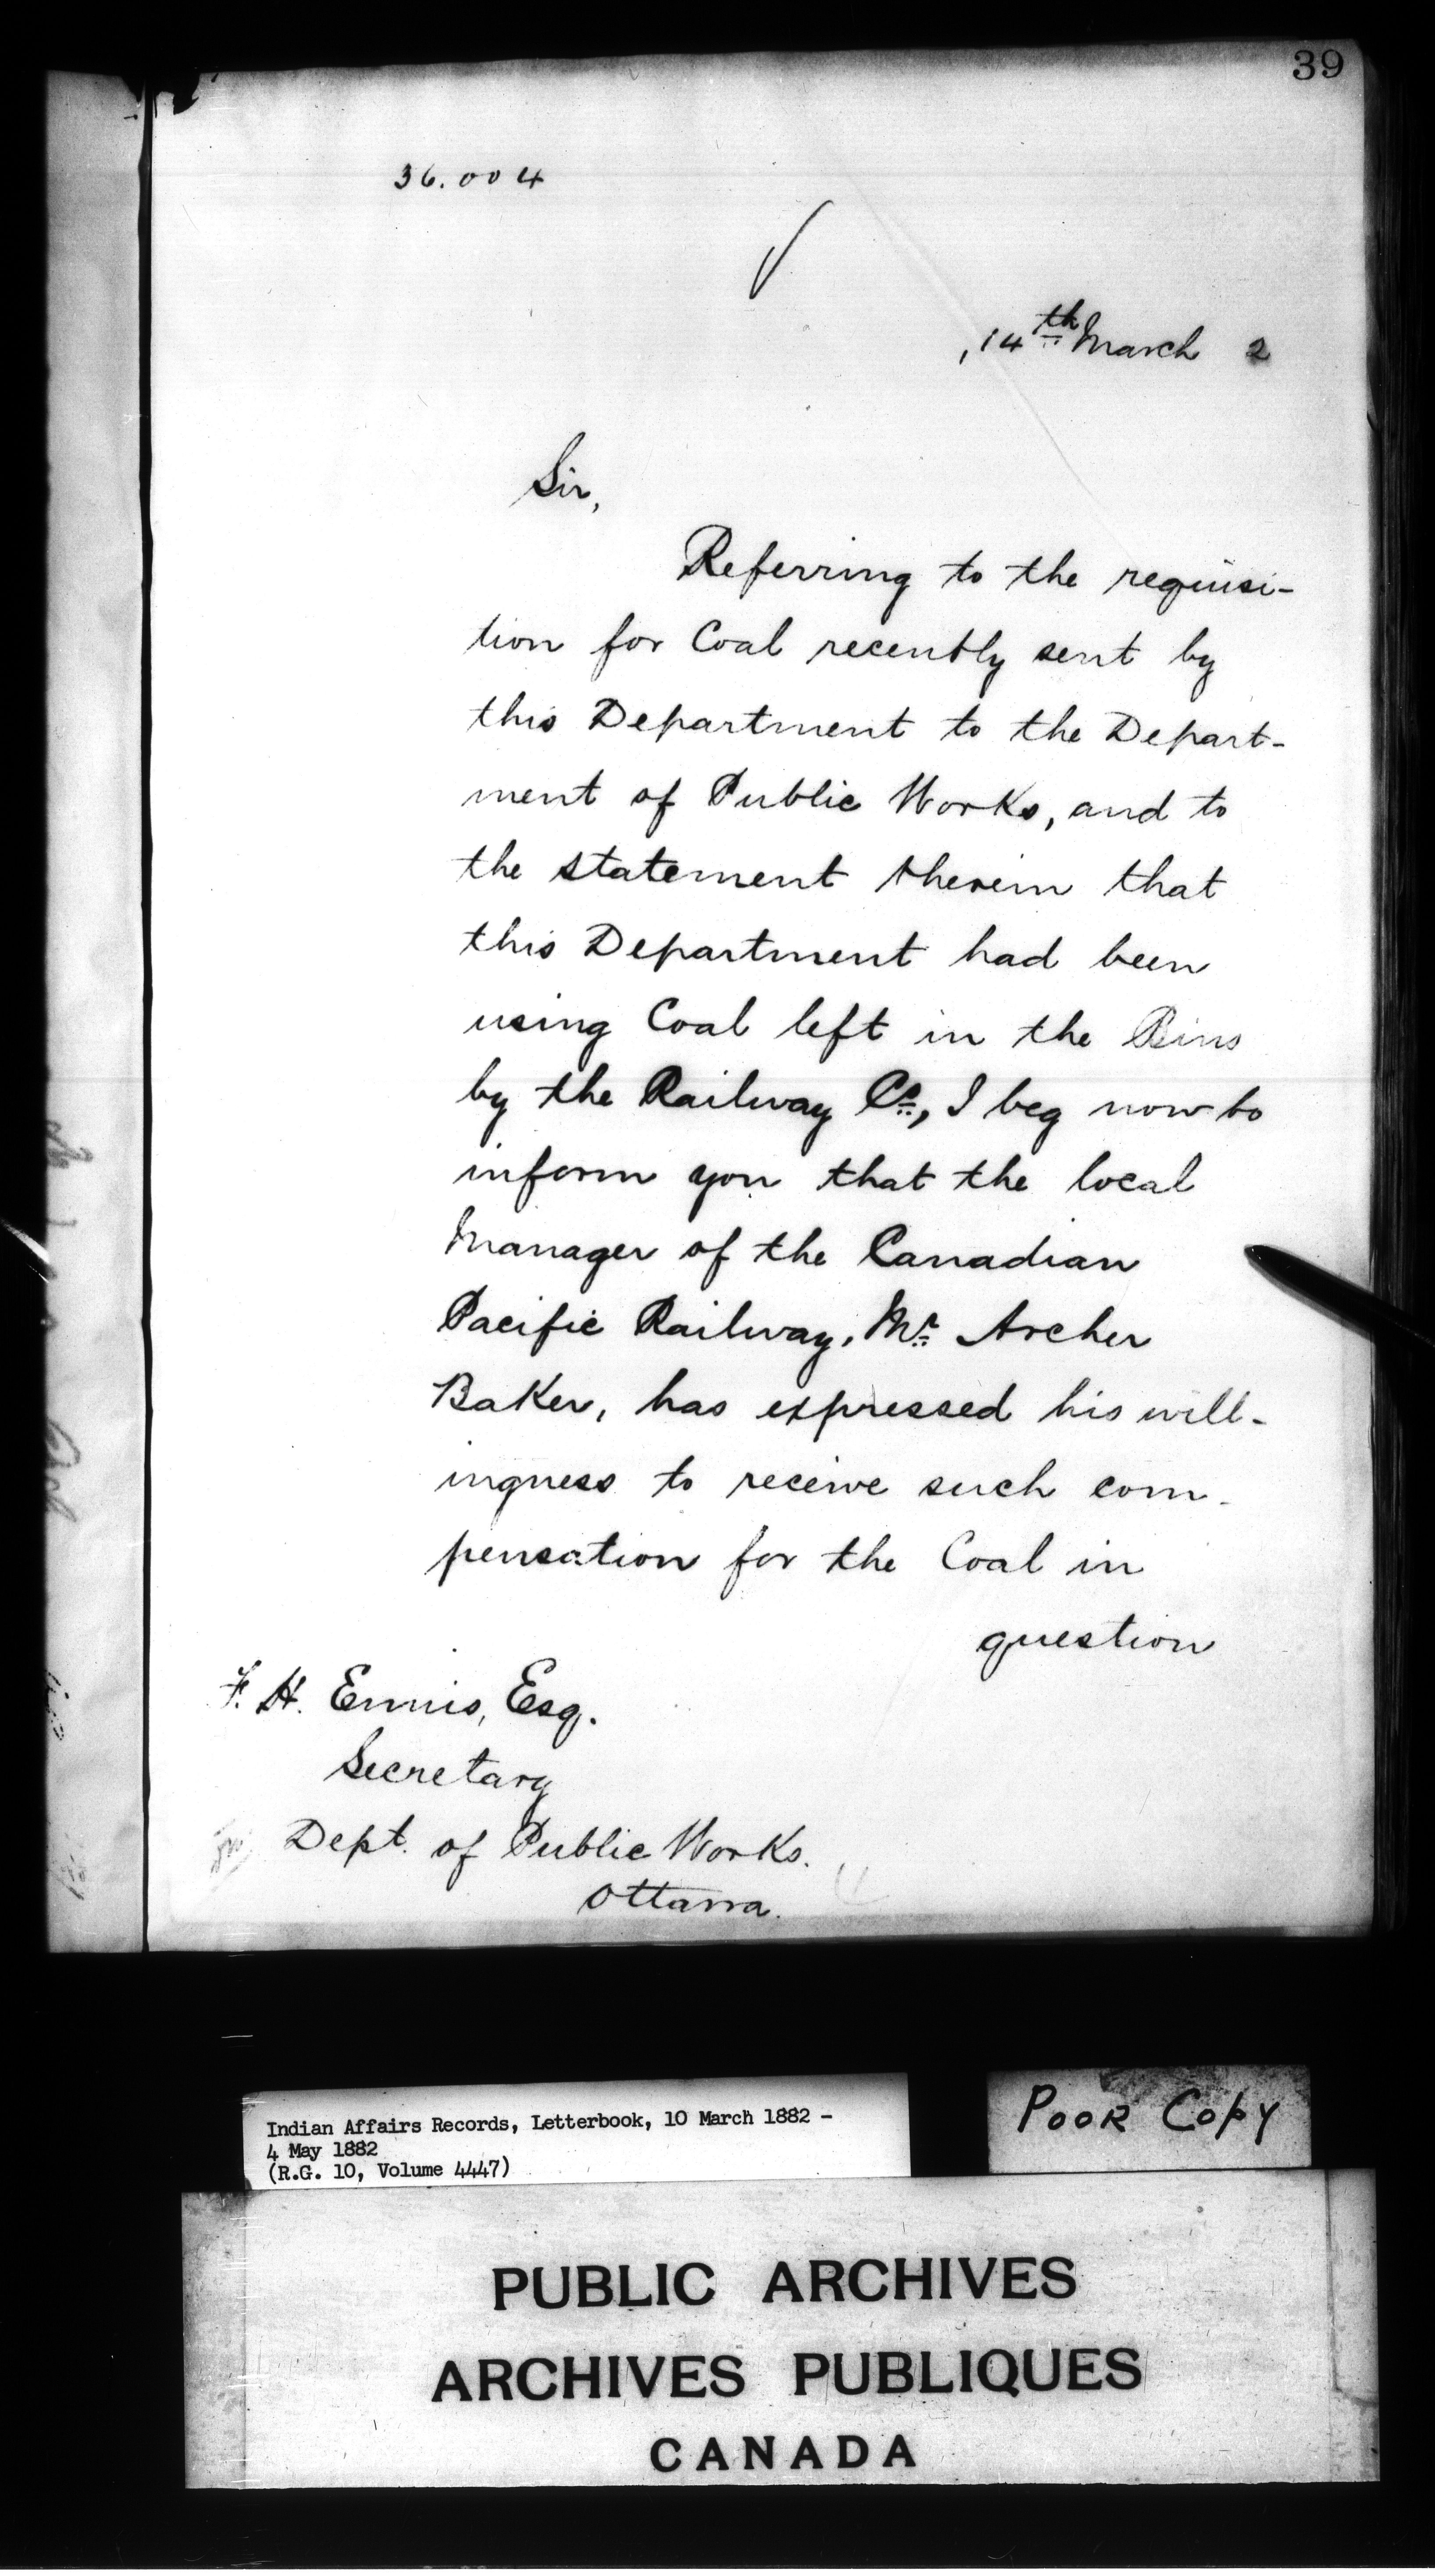 39
36.004
14th March 2
Sir,
Referring to the requisi-
tion for Coal recently sent by
this Department to the Depart-
ment of Public Works, and to
the statement therein that
this Department had been
using Coal left in the Bins
by the Railway Co, I beg now to
inform you that the local
Manager of the Canadian
Pacific Railway, Mr Archer
Baker, has expressed his will-
ingness to receive such com-
pensation for the Coal in
question
F. H. Ennis, Esq.
Secretary
Dept. of Public Works.
Ottawa.
Indian Affairs Records, Letterbook, 10 March 1882 -
4 May 1882
(R.G. 10, Volume 4447)
POOR COPY
PUBLIC ARCHIVES
ARCHIVES PUBLIQUES
CANADA